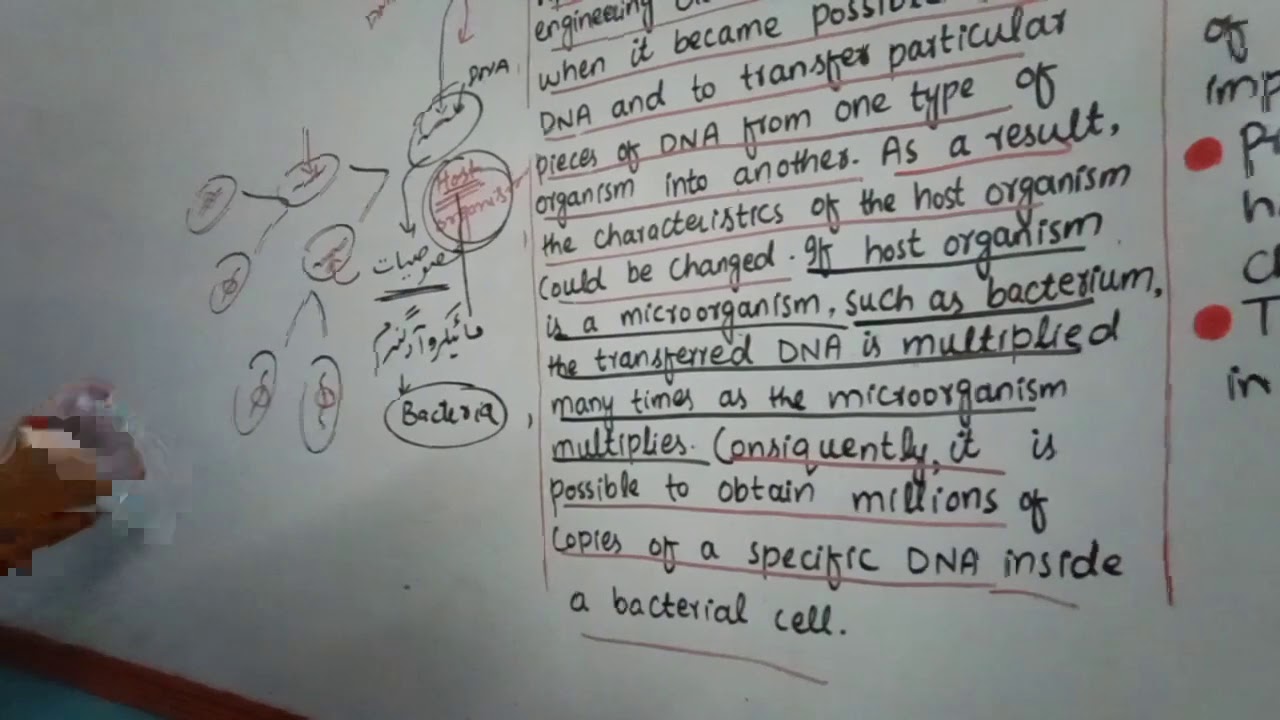 DNA
Host
organism
خصوصیات
مائیکروآرگنزم
Bacteria
engineering
when it became possible
DNA and to transfer particular
pieces of DNA from one type of
organism into another. As a result,
the characteristics of the host organism
could be changed. If host organism
is a microorganism, such as bacterium,
the transferred DNA is multiplied
many times as the microorganism
multiplies. Consiquently, it is
possible to obtain millions of
copies of a specific DNA inside
a bacterial cell.
of
in